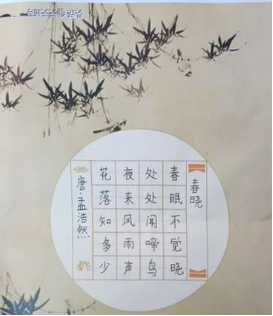 春晓
春眠不觉晓
处处闻啼鸟
夜来风雨声
花落知多少
唐·孟浩然